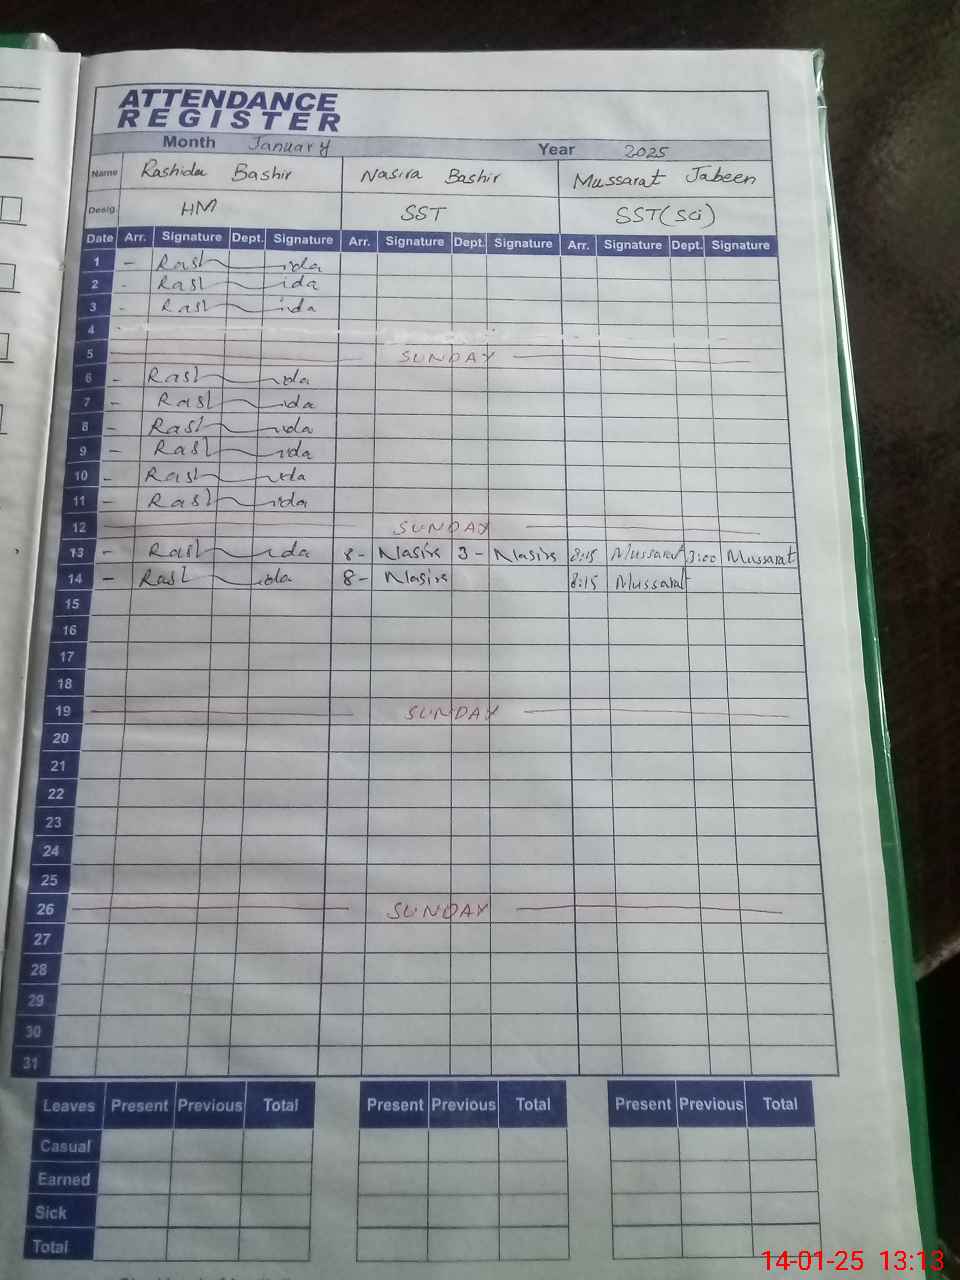 ATTENDANCE
REGISTER
Month January Year 2025
Name Rashida Bashir Nasira Bashir Mussarat Jabeen
Desig. HM SST SST(Sci)
Date Arr. Signature Dept. Signature Arr. Signature Dept. Signature Arr. Signature Dept. Signature
1 - Rashida
2 - Rashida
3 - Rashida
4
5 SUNDAY
6 - Rashida
7 - Rashida
8 - Rashida
9 - Rashida
10 - Rashida
11 - Rashida
12 SUNDAY
13 - Rashida 8- Nasira 3- Nasira 8:15 Mussarat 3:00 Mussarat
14 - Rashida 8- Nasira 8:15 Mussarat
15
16
17
18
19 SUNDAY
20
21
22
23
24
25
26 SUNDAY
27
28
29
30
31
Leaves Present Previous Total Present Previous Total Present Previous Total
Casual
Earned
Sick
Total
14-01-25 13:13